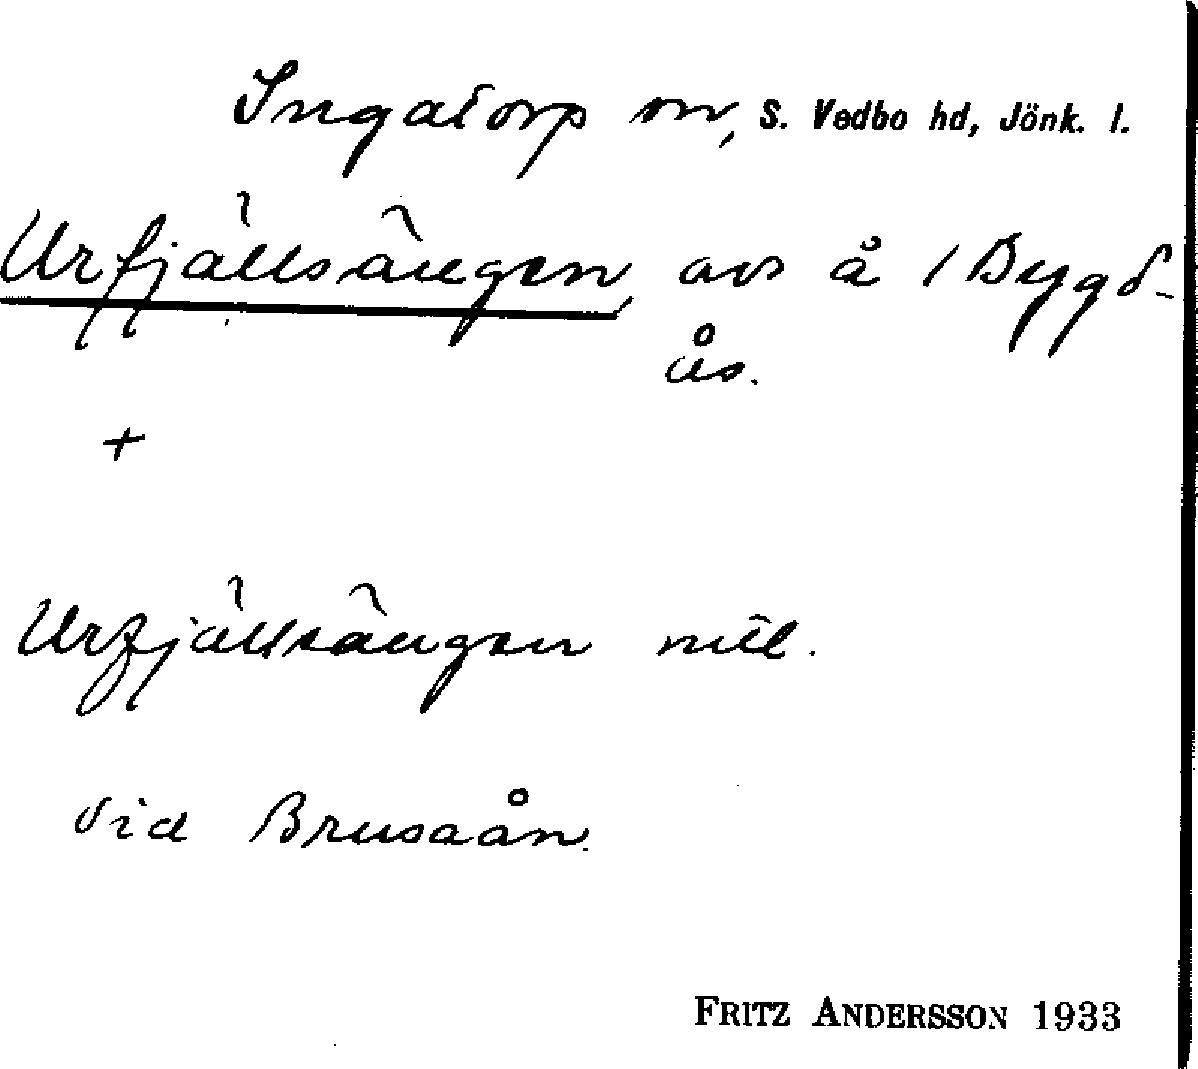 Ingatorp sn, S. Vedbo hd, Jönk. l.
Urfjällsängen, avs å 1 Bygd-
ås.
+
Urfjällsängen mtl.
vid Brusaån.
FRITZ ANDERSSON 1933